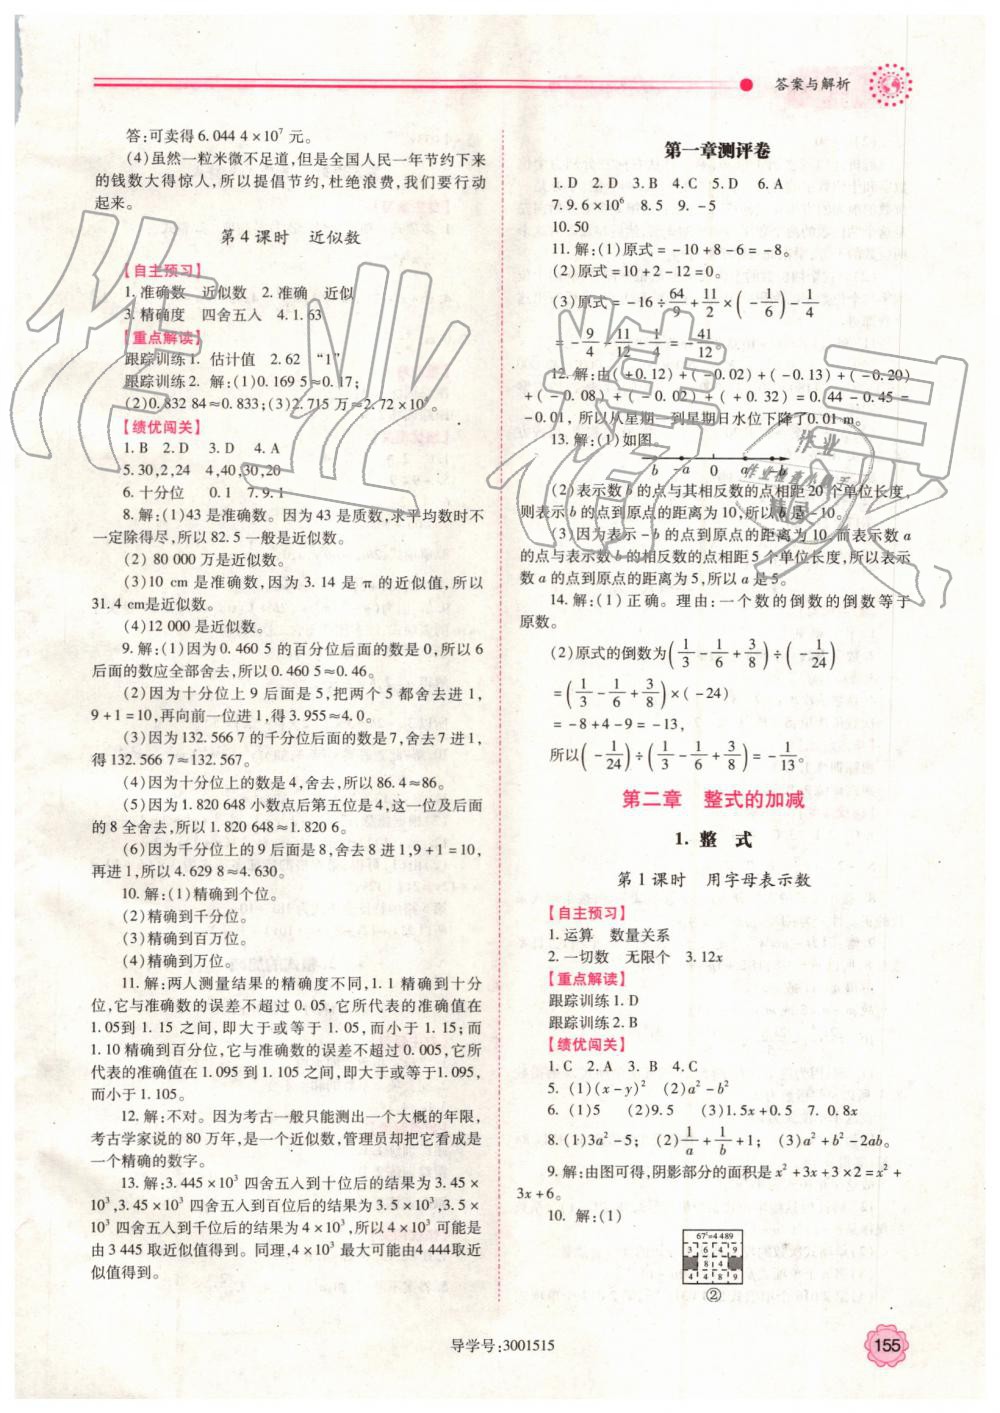 答案与解析
答:可卖得6.044 4×10⁷ 元。
(4)虽然一粒米微不足道,但是全国人民一年节约下来
的钱数大得惊人,所以提倡节约,杜绝浪费,我们要行动
起来。
第4课时　近似数
【自主预习】
1.准确数　近似数　2.准确　近似
3.精确度　四舍五入　4.1.63
【重点解读】
跟踪训练1.估计值　2.62　“1”
跟踪训练2.解:(1)0.169 5≈0.17;
(2)0.832 84≈0.833;(3)2.715万≈2.72×10⁴。
【绩优闯关】
1.B　2.D　3.D　4.A
5.30,2,24　4,40,30,20
6.十分位　0.1　7.9.1
8.解:(1)43是准确数。因为43是质数,求平均数时不
一定除得尽,所以82.5一般是近似数。
(2)80 000万是近似数。
(3)10 cm是准确数,因为3.14是π的近似值,所以
31.4 cm是近似数。
(4)12 000是近似数。
9.解:(1)因为0.460 5的百分位后面的数是0,所以6
后面的数应全部舍去,所以0.460 5≈0.46。
(2)因为十分位上9后面是5,把两个5都舍去进1,
9+1=10,再向前一位进1,得3.955≈4.0。
(3)因为132.566 7的千分位后面的数是7,舍去7进1,
得132.566 7≈132.567。
(4)因为十分位上的数是4,舍去,所以86.4≈86。
(5)因为1.820 648小数点后第五位是4,这一位及后面
的8全舍去,所以1.820 648≈1.820 6。
(6)因为千分位上的9后面是8,舍去8进1,9+1=10,
再进1,所以4.629 8≈4.630。
10.解:(1)精确到个位。
(2)精确到千分位。
(3)精确到百万位。
(4)精确到万位。
11.解:两人测量结果的精确度不同,1.1精确到十分
位,它与准确数的误差不超过0.05,它所代表的准确值在
1.05到1.15之间,即大于或等于1.05,而小于1.15;而
1.10精确到百分位,它与准确数的误差不超过0.005,它所
代表的准确值在1.095到1.105之间,即大于或等于1.095,
而小于1.105。
12.解:不对。因为考古一般只能测出一个大概的年限,
考古学家说的80万年,是一个近似数,管理员却把它看成是
一个精确的数字。
13.解:3.445×10³四舍五入到十位后的结果为3.45×
10³,3.45×10³四舍五入到百位后的结果为3.5×10³,3.5×
10³四舍五入到千位后的结果为4×10³,所以4×10³可能是
由3 445取近似值得到。同理,4×10³最大可能由4 444取近
似值得到。
第一章测评卷
1.D　2.D　3.B　4.C　5.D　6.A
7.9.6×10⁶　8.5　9.-5
10.50
11.解:(1)原式=-10+8-6=-8。
(2)原式=10+2-12=0。
(3)原式=-16÷64/9+11/2×(-1/6)-1/4
=-9/4-11/12-1/4=-41/12。
12.解:由(+0.12)+(-0.02)+(-0.13)+(-0.20)
+(-0.08)+(-0.02)+(+0.32)=0.44-0.45=
-0.01,所以从星期一到星期日水位下降了0.01 m。
13.解:(1)如图。
b　-a　0　a　-b
(2)表示数b的点与其相反数的点相距20个单位长度,
则表示b的点到原点的距离为10,所以b是-10。
(3)因为表示-b的点到原点的距离为10,而表示数a
的点与表示数b的相反数的点相距5个单位长度,所以表示
数a的点到原点的距离为5,所以a是5。
14.解:(1)正确。理由:一个数的倒数的倒数等于
原数。
(2)原式的倒数为(1/3-1/6+3/8)÷(-1/24)
=(1/3-1/6+3/8)×(-24)
=-8+4-9=-13,
所以(-1/24)÷(1/3-1/6+3/8)=-1/13。
第二章　整式的加减
1.整　式
第1课时　用字母表示数
【自主预习】
1.运算　数量关系
2.一切数　无限个　3.12x
【重点解读】
跟踪训练1.D
跟踪训练2.B
【绩优闯关】
1.C　2.A　3.B　4.C
5.(1)(x-y)²　(2)a²-b²
6.(1)5　(2)9.5　(3)1.5x+0.5　7.0.8x
8.(1)3a²-5;　(2)1/a+1/b+1;　(3)a²+b²-2ab。
9.解:由图可得,阴影部分的面积是x²+3x+3×2=x²+
3x+6。
10.解:(1)
67²=4 489
3 6 4 9
8 4
4 4 8 9
②
导学号:3001515
155
作业检查小助手
精灵